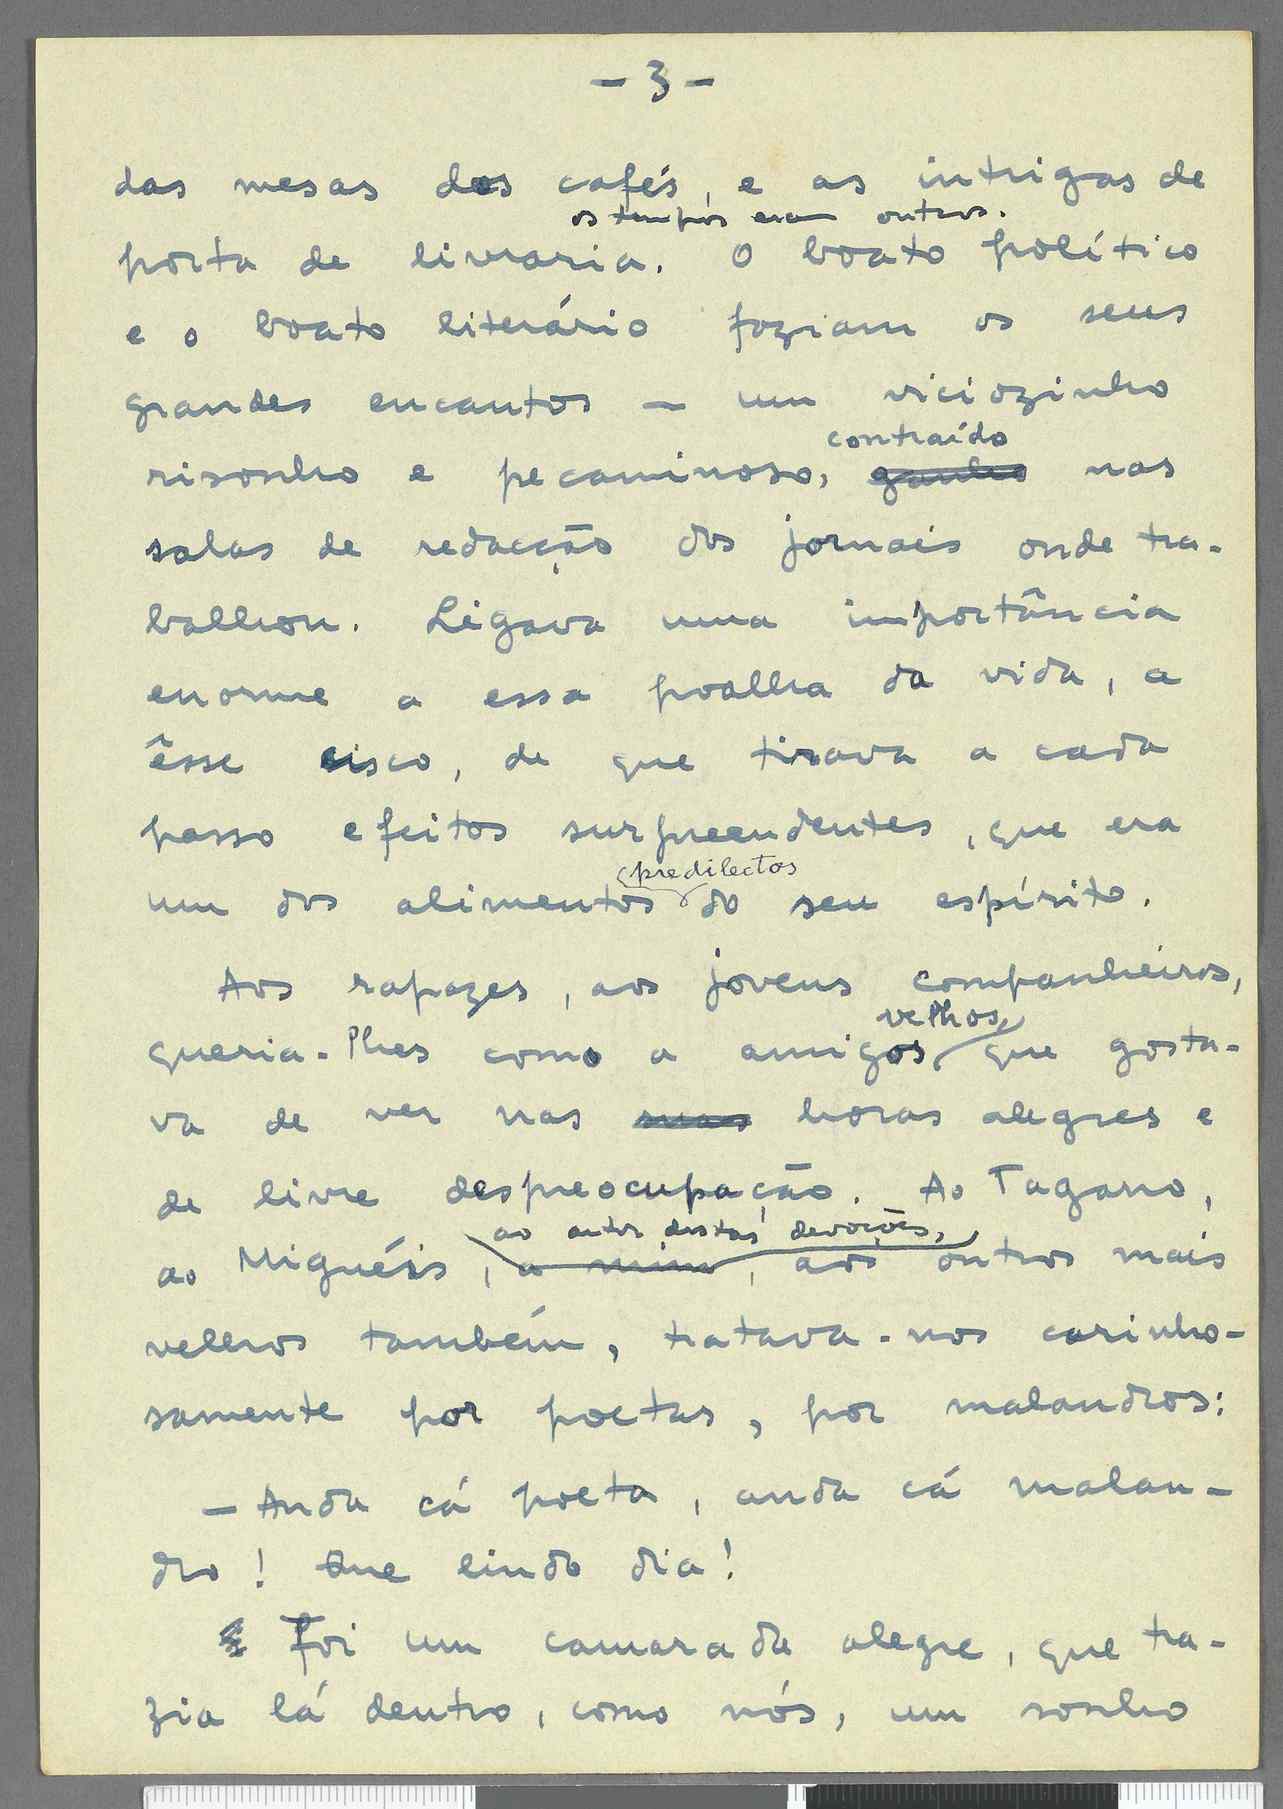 - 3 -
das mesas dos cafés, e as intrigas de
os tempos eram outros.
porta de livraria. O boato político
e o boato literário faziam os seus
grandes encantos — um viciozinho
contraído
risonho e pecaminoso, ganho nas
salas de redacção dos jornais onde tra-
balhou. Ligava uma importância
enorme a essa poalha da vida, a
êsse cisco, de que tirava a cada
passo efeitos surpreendentes, que era
predilectos
um dos alimentos do seu espírito.
Aos rapazes, aos jovens companheiros,
velhos,
queria-lhes como a amigos que gosta-
va de ver nas suas horas alegres e
de livre despreocupação. Ao Tagarro,
ao autor destas devoções,
ao Miguéis, a mim, aos outros mais
velhos também, tratava-nos carinho-
samente por poetas, por malandros:
— Anda cá poeta, anda cá malan-
dro! Que lindo dia!
Foi um camarada alegre, que tra-
zia lá dentro, como nós, um sonho